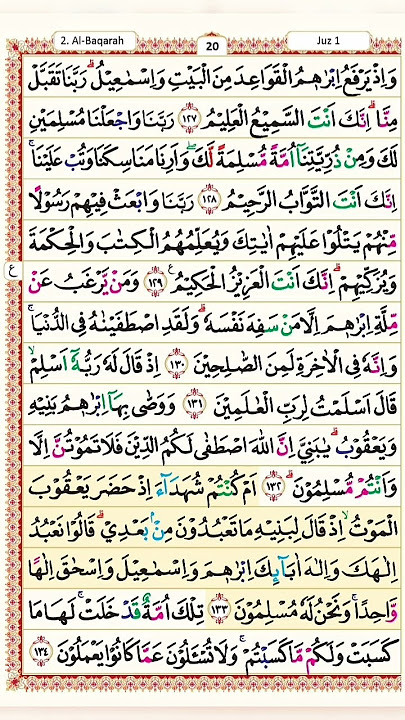 2. Al-Baqarah
20
Juz 1
وَاِذْ يَرْفَعُ اِبْرٰهٖمُ الْقَوَاعِدَ مِنَ الْبَيْتِ وَاِسْمٰعِيْلُ ؕ رَبَّنَا تَقَبَّلْ
مِنَّا ؕ اِنَّكَ اَنْتَ السَّمِيْعُ الْعَلِيْمُ ﴿۱۲۷﴾ رَبَّنَا وَاجْعَلْنَا مُسْلِمَيْنِ
لَكَ وَمِنْ ذُرِّيَّتِنَاۤ اُمَّةً مُّسْلِمَةً لَّكَ ۪ وَاَرِنَا مَنَاسِكَنَا وَتُبْ عَلَيْنَا ۚ
اِنَّكَ اَنْتَ التَّوَّابُ الرَّحِيْمُ ﴿۱۲۸﴾ رَبَّنَا وَابْعَثْ فِيْهِمْ رَسُوْلًا
مِّنْهُمْ يَتْلُوْا عَلَيْهِمْ اٰيٰتِكَ وَيُعَلِّمُهُمُ الْكِتٰبَ وَالْحِكْمَةَ
وَيُزَكِّيْهِمْ ؕ اِنَّكَ اَنْتَ الْعَزِيْزُ الْحَكِيْمُ ﴿۱۲۹﴾ وَمَنْ يَّرْغَبُ عَنْ
ع
مِّلَّةِ اِبْرٰهٖمَ اِلَّا مَنْ سَفِهَ نَفْسَهٗ ؕ وَلَقَدِ اصْطَفَيْنٰهُ فِى الدُّنْيَا ۚ
وَاِنَّهٗ فِى الْاٰخِرَةِ لَمِنَ الصّٰلِحِيْنَ ﴿۱۳۰﴾ اِذْ قَالَ لَهٗ رَبُّهٗۤ اَسْلِمْ ۙ
قَالَ اَسْلَمْتُ لِرَبِّ الْعٰلَمِيْنَ ﴿۱۳۱﴾ وَوَصّٰى بِهَاۤ اِبْرٰهٖمُ بَنِيْهِ
وَيَعْقُوْبُ ؕ يٰبَنِيَّ اِنَّ اللّٰهَ اصْطَفٰى لَكُمُ الدِّيْنَ فَلَا تَمُوْتُنَّ اِلَّا
وَاَنْتُمْ مُّسْلِمُوْنَ ؕ ﴿۱۳۲﴾ اَمْ كُنْتُمْ شُهَدَآءَ اِذْ حَضَرَ يَعْقُوْبَ
الْمَوْتُ ۙ اِذْ قَالَ لِبَنِيْهِ مَا تَعْبُدُوْنَ مِنْۢ بَعْدِيْ ؕ قَالُوْا نَعْبُدُ
اِلٰهَكَ وَاِلٰهَ اٰبَآئِكَ اِبْرٰهٖمَ وَاِسْمٰعِيْلَ وَاِسْحٰقَ اِلٰهًا
وَّاحِدًا ۖۚ وَّنَحْنُ لَهٗ مُسْلِمُوْنَ ﴿۱۳۳﴾ تِلْكَ اُمَّةٌ قَدْ خَلَتْ ۚ لَهَا مَا
كَسَبَتْ وَلَكُمْ مَّا كَسَبْتُمْ ۚ وَلَا تُسْـَٔلُوْنَ عَمَّا كَانُوْا يَعْمَلُوْنَ ﴿۱۳۴﴾